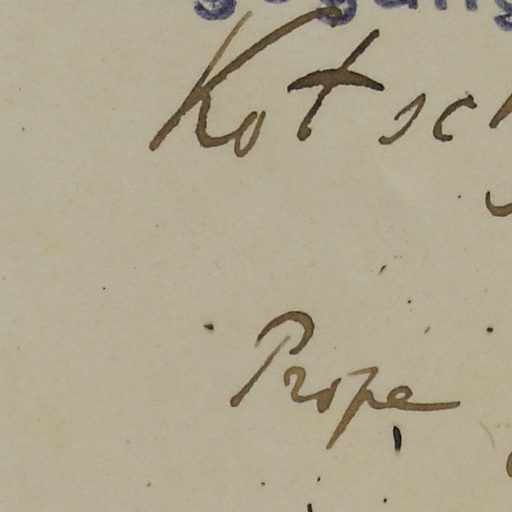 Kotsch
Prope